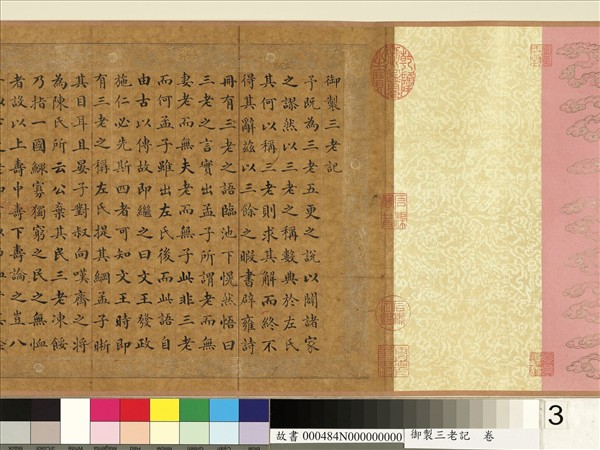 御製三老記
予既為三老五更之說以闢諸家
之謬然以三老之稱數典於左氏
其何以稱三老則求其解而終不
得其辭茲以三餘之暇書辟雍詩
冊有三老之語臨池下愰然悟曰
三老之言實出孟子所謂老而無
妻老而無夫老而無子此非三老
而何孟子雖出左氏後而此語自
由古以傳故即繼之曰文王發政
施仁必先斯四者可知文王時即
有三老之稱左氏提其綱孟子晰
其目耳且晏子對叔向嘆齊之將
為陳氏所云公棄其民三老凍餒
乃指一國鰥寡獨窮之民之無恤
者設以上壽中壽下壽論之豈八
故書 000484N000000000
御製三老記 卷
3